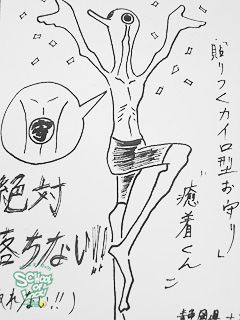 「貼りつくカイロ型お守り」
"癒着くん"
絶対
落ちない!!
れない!!)
静岡県
SCHOOL OF LOCK!